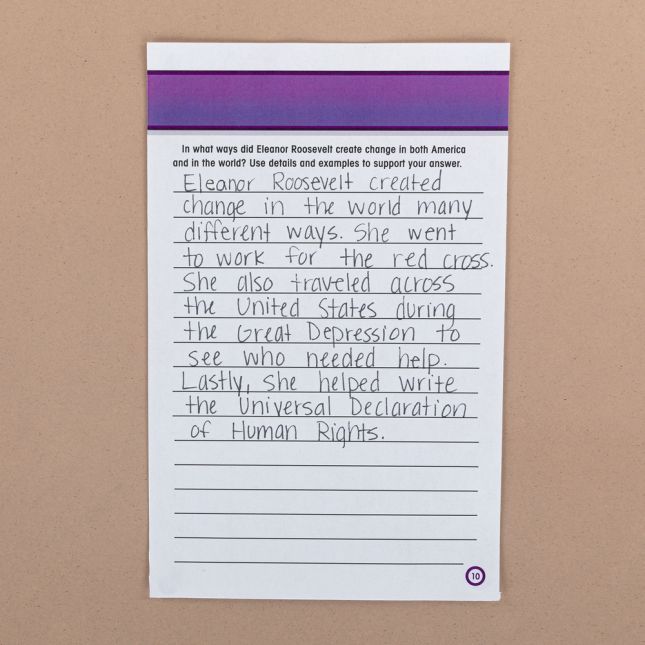 In what ways did Eleanor Roosevelt create change in both America
and in the world? Use details and examples to support your answer.
Eleanor Roosevelt created
change in the world many
different ways. She went
to work for the red cross.
She also traveled across
the United States during
the Great Depression to
see who needed help.
Lastly, she helped write
the Universal Declaration
of Human Rights.
10